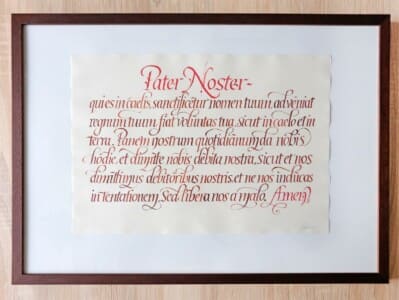 Pater Noster
qui es in caelis, sanctificetur nomen tuum, adveniat
regnum tuum, fiat voluntas tua, sicut in caelo et in
terra. Panem nostrum quotidianum da nobis
hodie, et dimitte nobis debita nostra, sicut et nos
dimittimus debitoribus nostris et ne nos inducas
in tentationem, Sed libera nos a malo, Amen